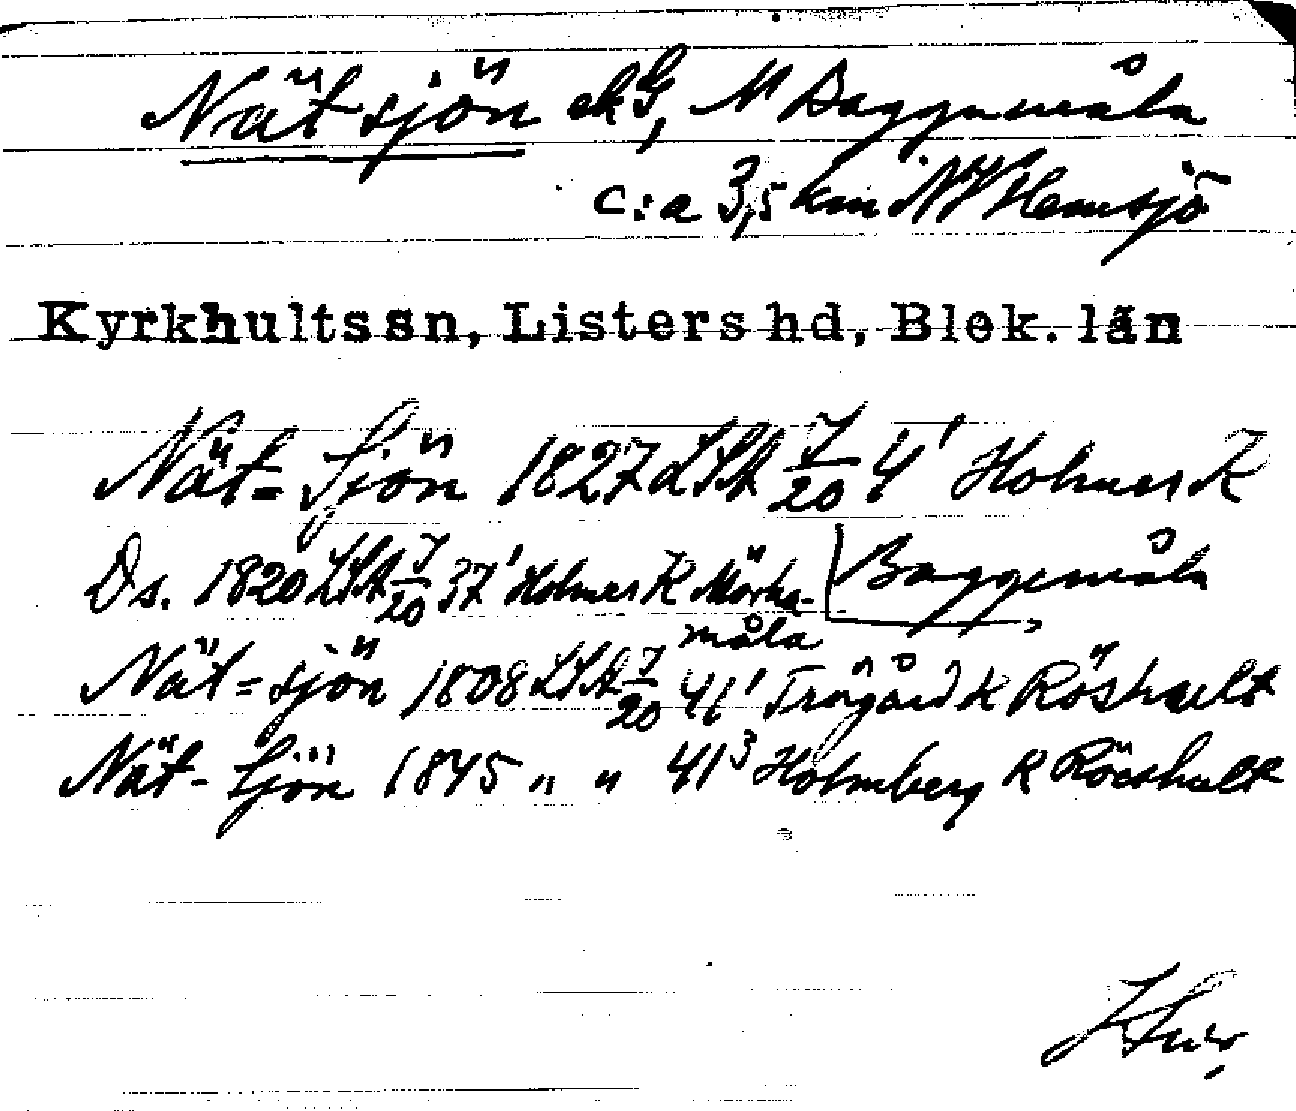 Nätsjön ekG, N Baggemåla
c:a 3,5 km NV Hemsjö
Kyrkhults sn, Listers hd, Blek. län
Nät= Sjön 1827 LSA 7/20 4' Holmer K
Baggemåla
Ds. 1820 LSA 7/20 37' Holmer K Mörka-
måla
Nät=sjön 1808 LSA 7/20 41' Trägård K Röshult
Nät- Sjön 1845 " " 41³ Holmberg K Röeshult